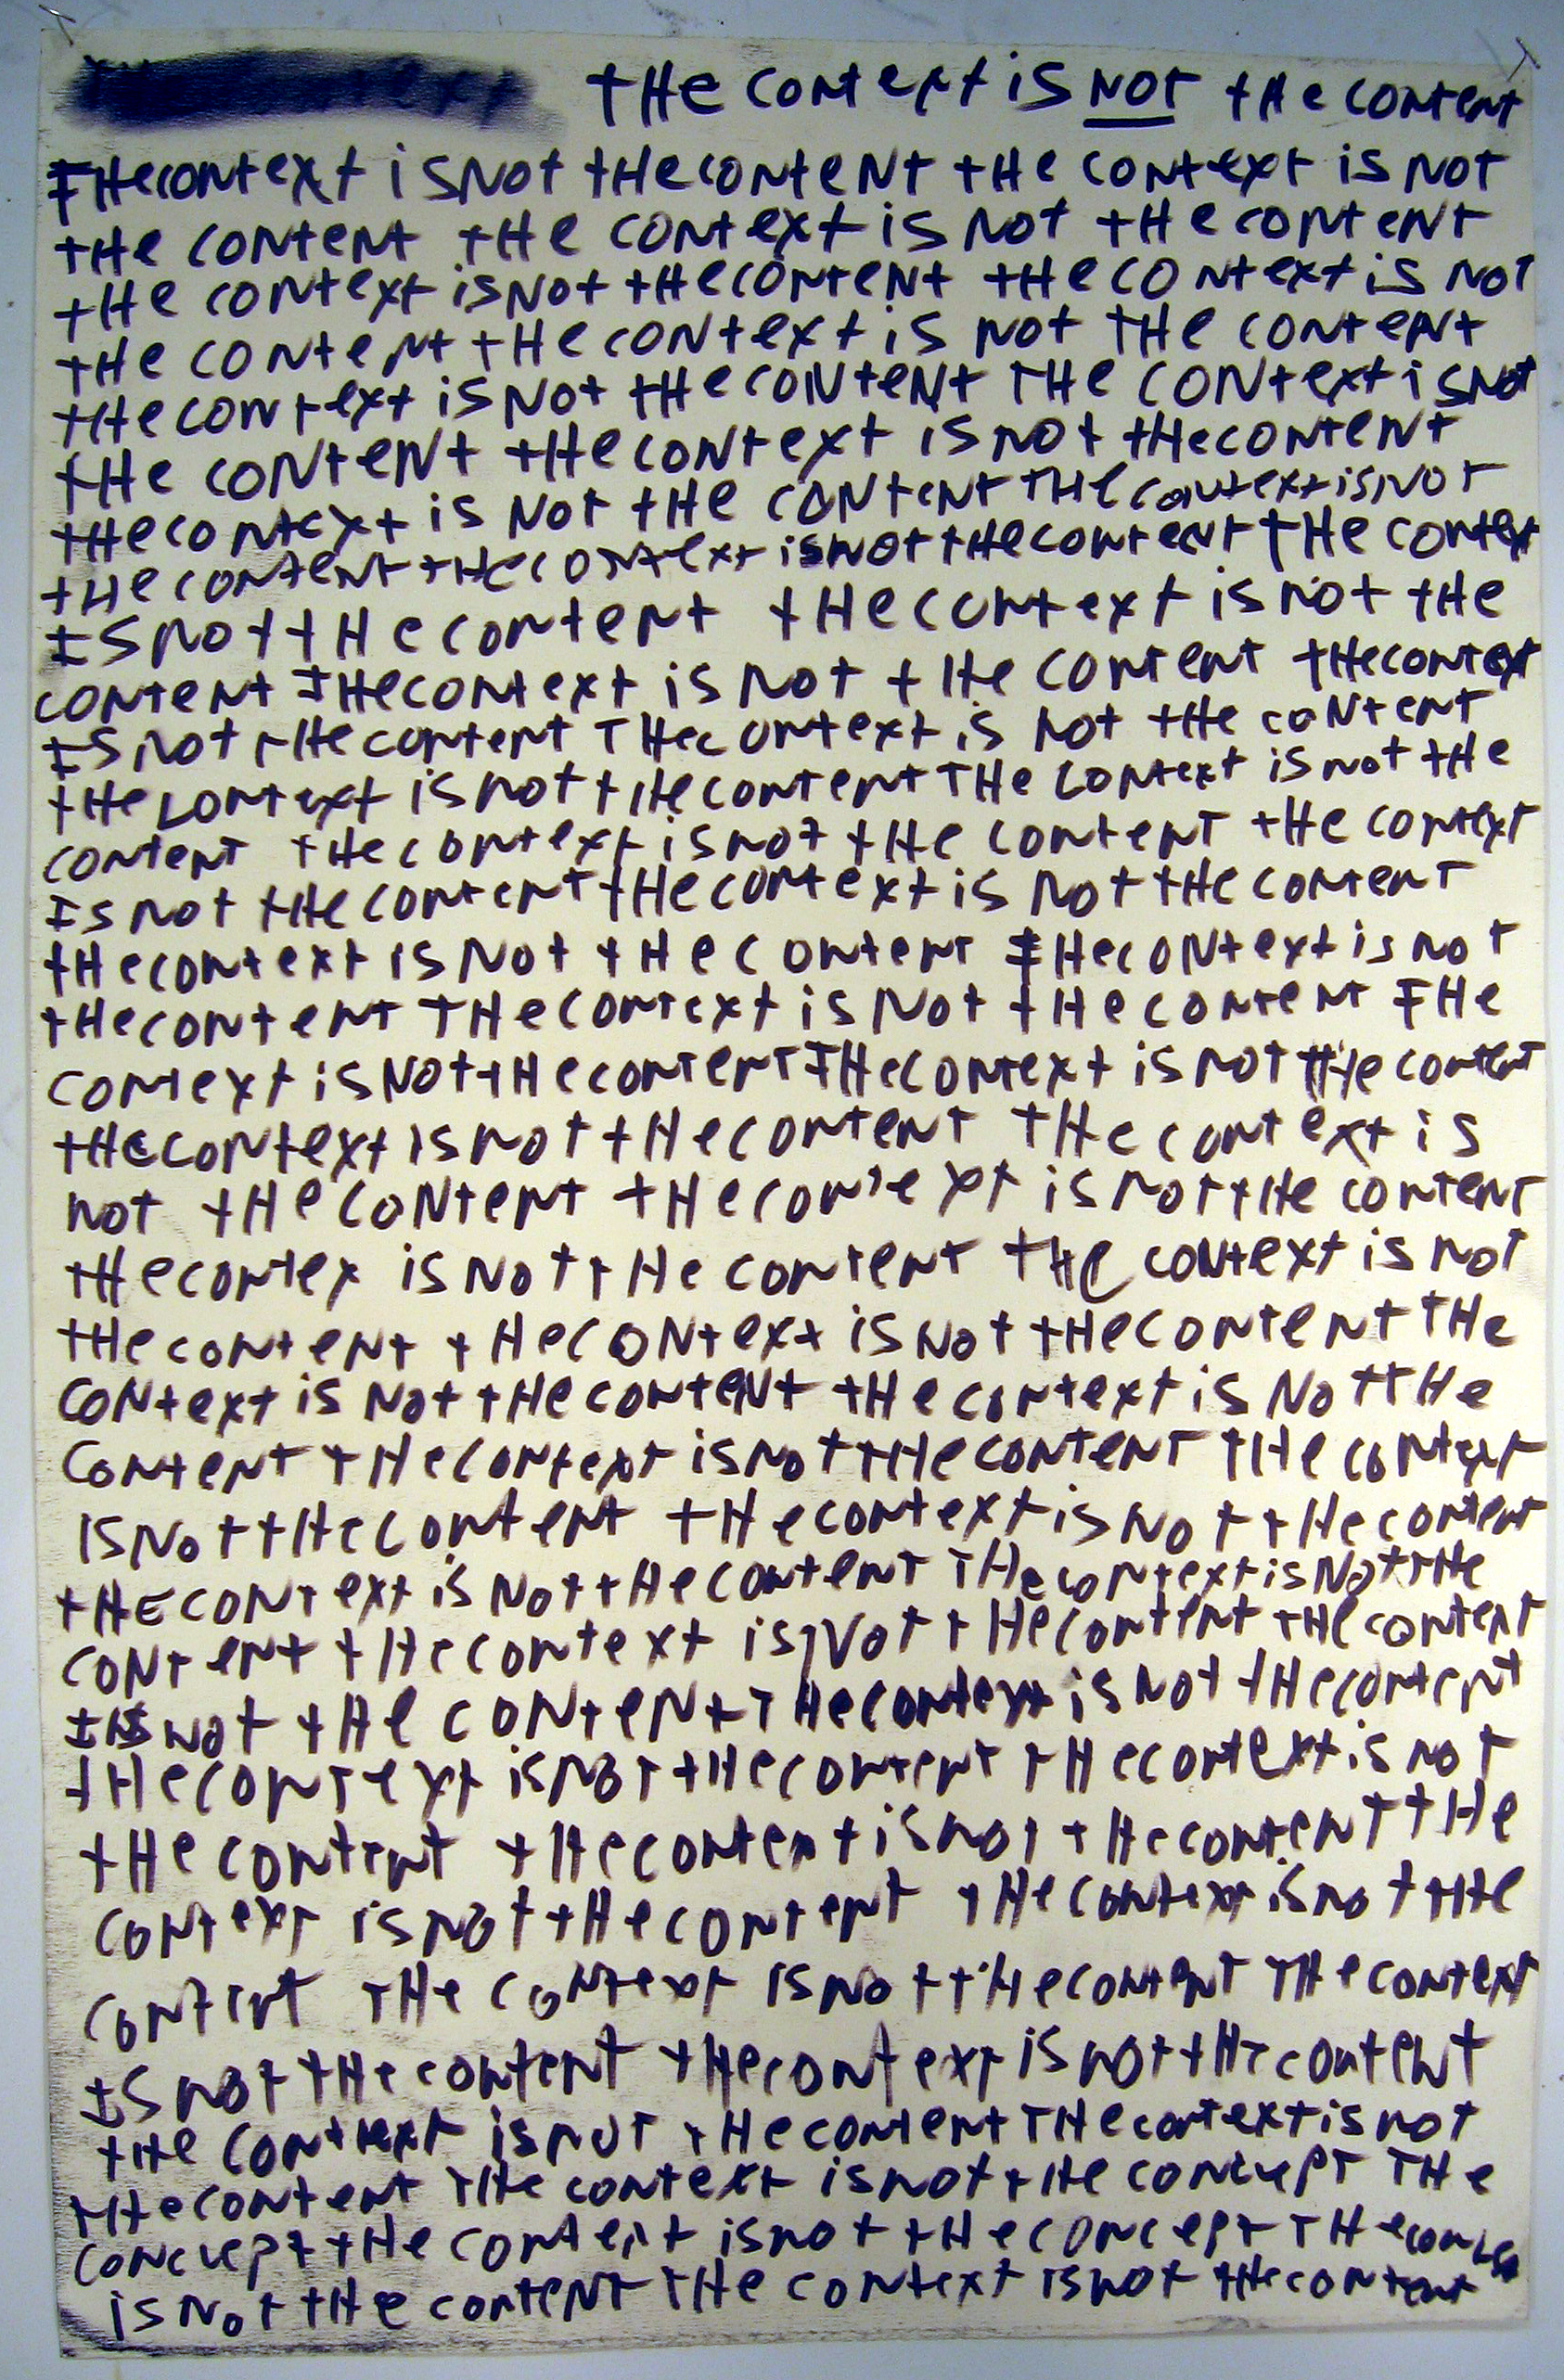 THE CONTEXT IS NOT THE CONTENT
THE CONTEXT IS NOT THE CONTENT THE CONTEXT IS NOT
THE CONTENT THE CONTEXT IS NOT THE CONTENT
THE CONTEXT IS NOT THE CONTENT THE CONTEXT IS NOT
THE CONTENT THE CONTEXT IS NOT THE CONTENT
THE CONTEXT IS NOT THE CONTENT THE CONTEXT IS NOT
THE CONTENT THE CONTEXT IS NOT THE CONTENT
THE CONTEXT IS NOT THE CONTENT THE CONTEXT IS NOT
THE CONTENT THE CONTEXT IS NOT THE CONTENT THE CONTEXT
IS NOT THE CONTENT THE CONTEXT IS NOT THE
CONTENT THE CONTEXT IS NOT THE CONTENT THE CONTEXT
IS NOT THE CONTENT THE CONTEXT IS NOT THE CONTENT
THE CONTEXT IS NOT THE CONTENT THE CONTEXT IS NOT THE
CONTENT THE CONTEXT IS NOT THE CONTENT THE CONTEXT
IS NOT THE CONTENT THE CONTEXT IS NOT THE CONTENT
THE CONTEXT IS NOT THE CONTENT THE CONTEXT IS NOT
THE CONTENT THE CONTEXT IS NOT THE CONTENT THE
CONTEXT IS NOT THE CONTENT THE CONTEXT IS NOT THE CONTENT
THE CONTEXT IS NOT THE CONTENT THE CONTEXT IS
NOT THE CONTENT THE CONTEXT IS NOT THE CONTENT
THE CONTEX IS NOT THE CONTENT THE CONTEXT IS NOT
THE CONTENT THE CONTEXT IS NOT THE CONTENT THE
CONTEXT IS NOT THE CONTENT THE CONTEXT IS NOT THE
CONTENT THE CONTEXT IS NOT THE CONTENT THE CONTEXT
IS NOT THE CONTENT THE CONTEXT IS NOT THE CONTENT
THE CONTEXT IS NOT THE CONTENT THE CONTEXT IS NOT THE
CONTENT THE CONTEXT IS NOT THE CONTENT THE CONTEXT
IS NOT THE CONTENT THE CONTEXT IS NOT THE CONTENT
THE CONTEXT IS NOT THE CONTENT THE CONTEXT IS NOT
THE CONTENT THE CONTENT IS NOT THE CONTENT THE
CONTEXT IS NOT THE CONTENT THE CONTEXT IS NOT THE
CONTENT THE CONTEXT IS NOT THE CONTENT THE CONTEXT
IS NOT THE CONTENT THE CONTEXT IS NOT THE CONTENT
THE CONTEXT IS NOT THE CONTENT THE CONTEXT IS NOT
THE CONTENT THE CONTEXT IS NOT THE CONCEPT THE
CONCEPT THE CONTEXT IS NOT THE CONCEPT THE
IS NOT THE CONTENT THE CONTEXT IS NOT THE CONTENT